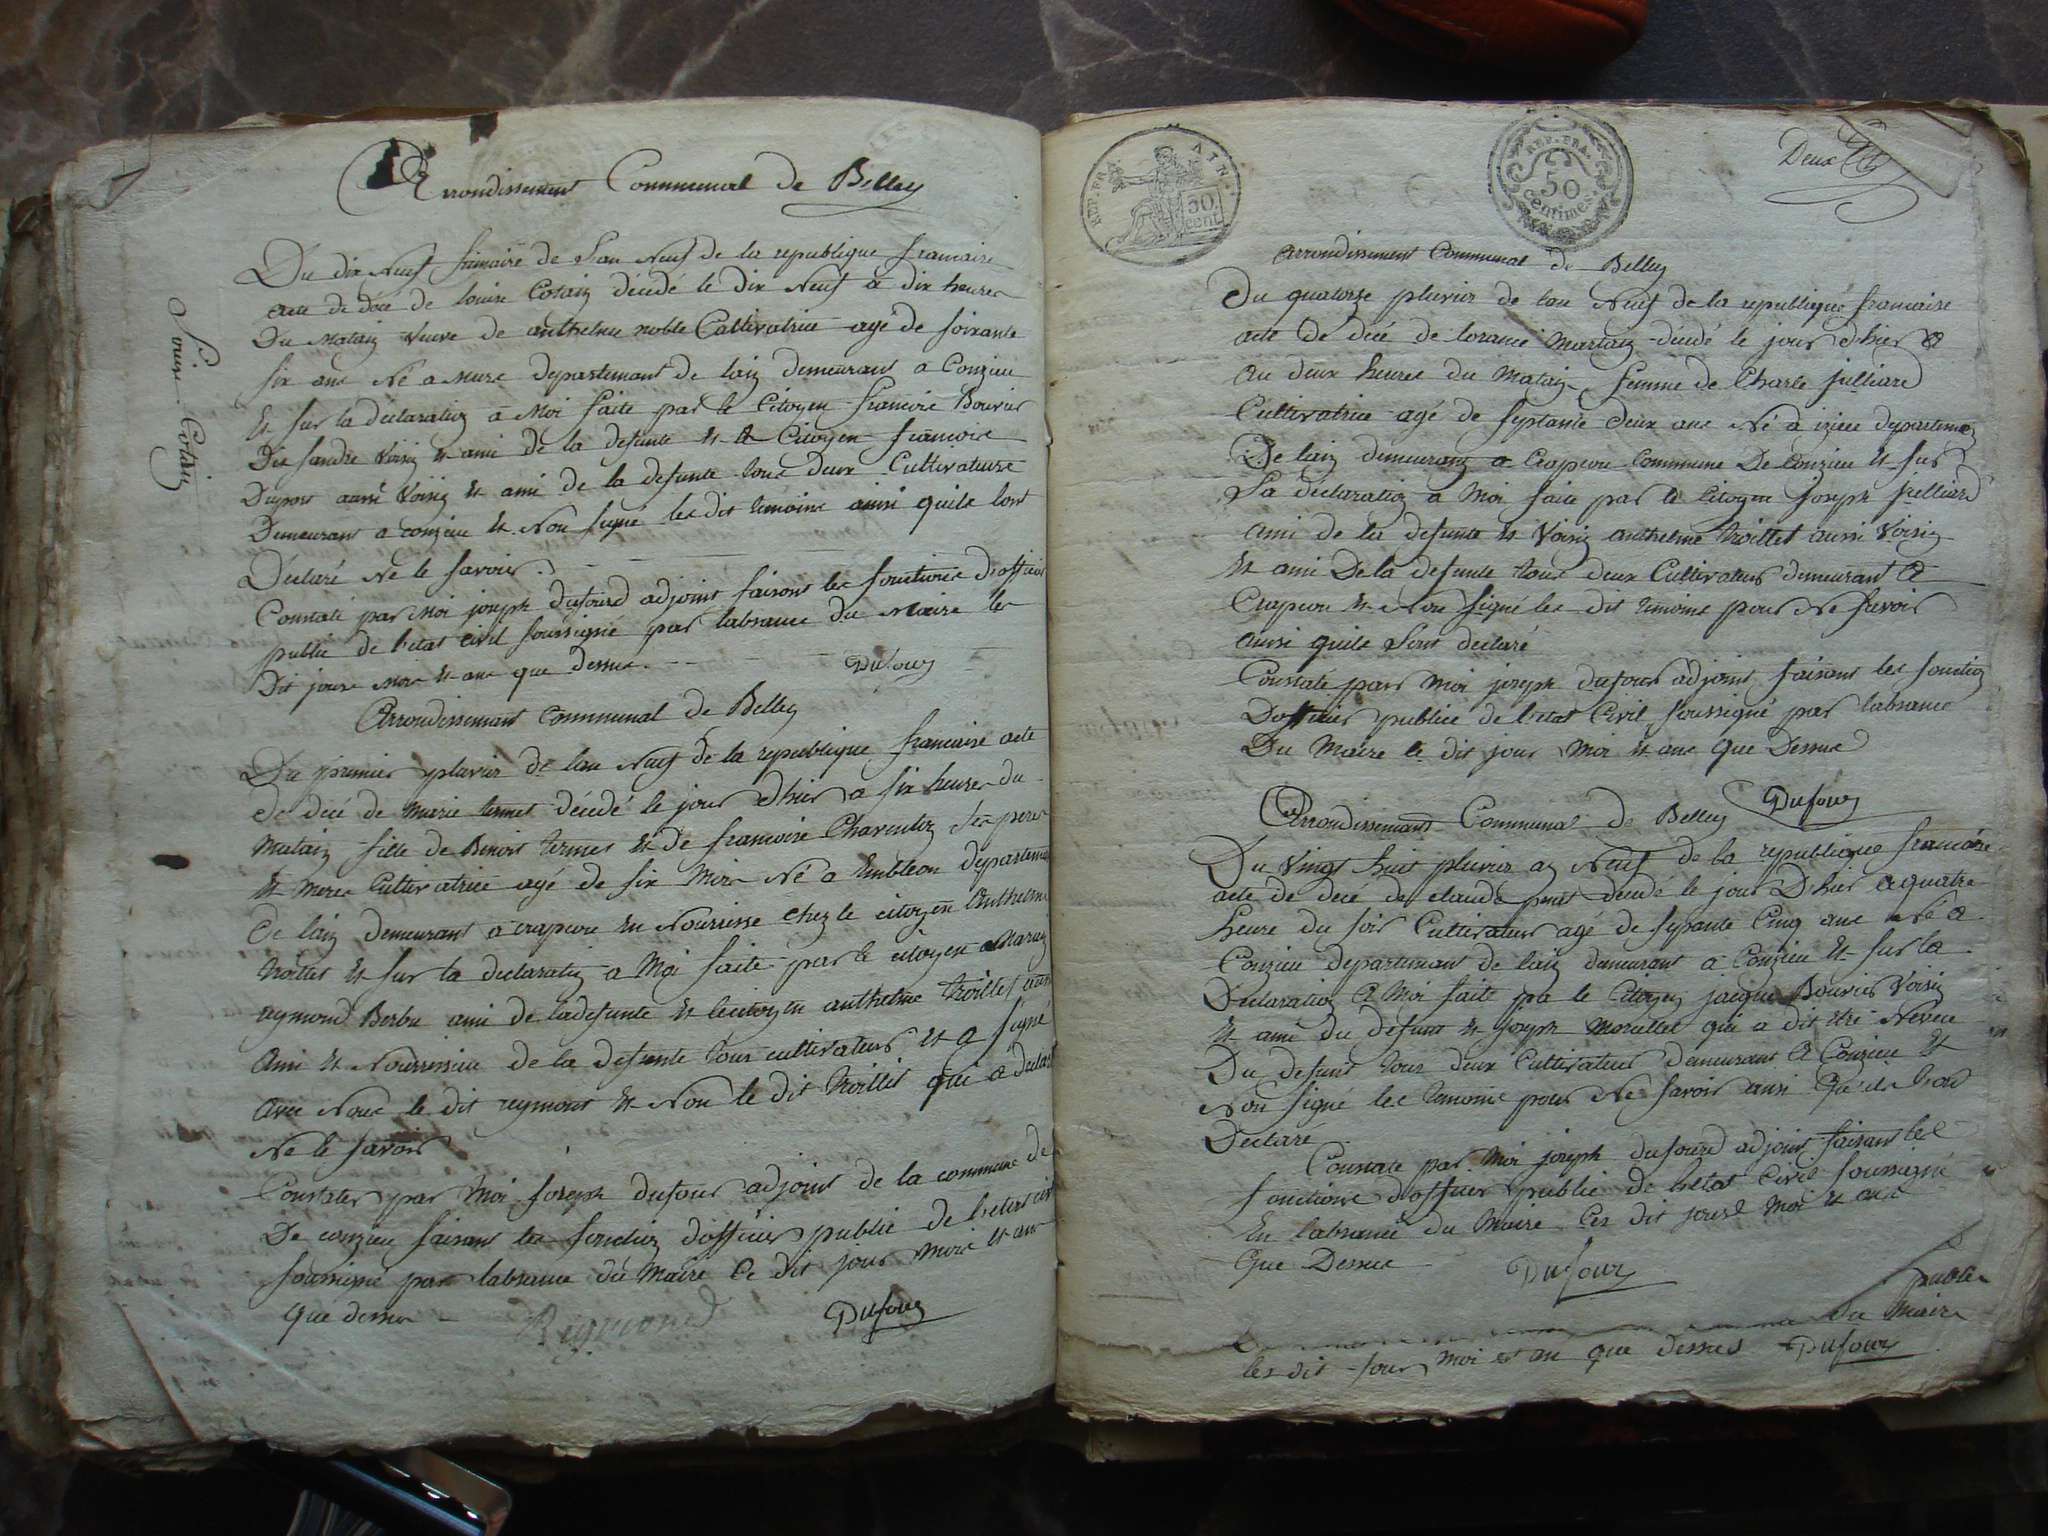 Arrondissement Communal de Belley
Du dix Neuf frimaire de Lan Neuf de la republique francaise
acte de décé de louise Cotain décédé le dix Neuf a dix heures
Du Matain veuve de anthelme noble Cultivatrice agé de soixante
six ans Né a departement de lain demeurant a Conzieu
Et sur la declaration a Moi faite par le Citoyen francois Bouvier
Voisin et ami de la defunte et le Citoyen francois
Dupont aussi Voisin et ami de la defunte tous deux Cultivateurs
Demeurant a conzieu et Non signé les dit temoins ainsi quils lont
Déclaré Ne le savoir.
Constaté par Moi joseph dufourd adjoint faisant les fonctions d'officier
public de l'etat Civil soussigné par labsance du Maire les
Dit jours Mois et ans que dessus.
Dufour
Louise Cotain
Arrondissement Communal de Belley
Du premier pluvios de lan Neuf de la republique francaise acte
de décé de Marie termet décédé le jour d'hier a six heures du
Matain fille de Benoit termet et de francoise Charenton ses pere
et Mere Cultivatrice agé de six Mois Né a Embleon departement
De lain demeurant a crapeou en Nourisse chez le citoyen Anthelme
troillet et sur la declaration a Moi faite par le citoyen
reymond Berbu ami de ladefunte et lecitoyen anthelme troillet aussi
Ami et Nourrissieu de la defunte tous cultivateurs et a signé
avec Nous le dit reymont et Non le dit troillet qui a declaré
Ne le savoir
Constater par Moi joseph dufour adjoint de la commune de
De conzieu faisant les fonction d'officier public de l'etat civil
soussigné par labsance du Maire le dit jour mois et ans
que dessus
Reymond
Dufour
REP. FRA.
AIN.
50 cent
REP. FRA.
50
Centimes
Deux
Arrondissement Communal de Belley
Du quatorze pluvios de lan Neuf de la republique francaise
acte de décé de lorance Martain décédé le jour d'hier
au deux heures du Matain femme de Charle julliard
Cultivatrice agé de septante deux ans Né à izieu departement
De lain demeurant a Crapeou Commune De Conzieu et sur
La déclaration a Moi faite par le Citoyen joseph julliard
ami de la defunte et Voisin anthelme troillet aussi Voisin
et ami De la defunte tous deux Cultivateur demeurant a
Crapeou et Non signé les dit temoins pour Ne savoir
ainsi quils Lont declaré
Constaté par Moi joseph dufour adjoint faisant les fonction
Dofficier publice de l'etat Civil soussigné par labsance
Du Maire le dit jour Moi et ans que Dessus
Dufour
Arrondissement Communal de Belley
Du Vingt huit pluvios an Neuf de la republique francaise
acte de décé de claude petit décédé le jour D'hier a quatre
heure du soir Cultivateur agé de septante Cinq ans Né a
Conzieu departement de lain demeurant a Conzieu et sur la
Déclaration A Moi faite par le Citoyen jacque Bouvier Voisin
et ami du defunt et joseph qui a dit etre Neveu
Du defunt tous deux Cultivateur demeurant A Conzieu et
Non signé les temoins pour Ne savoir ainsi Qu'ils Lont
Declaré
Constate par Moi joseph dufourd adjoint faisant les
fonctions d'officier public de l'etat Civil soussigné
En labsance du Maire Les dit jours Moi et ans
Que Dessus
Dufour
public
du Maire
les dit jours Moi et an que dessus Dufour